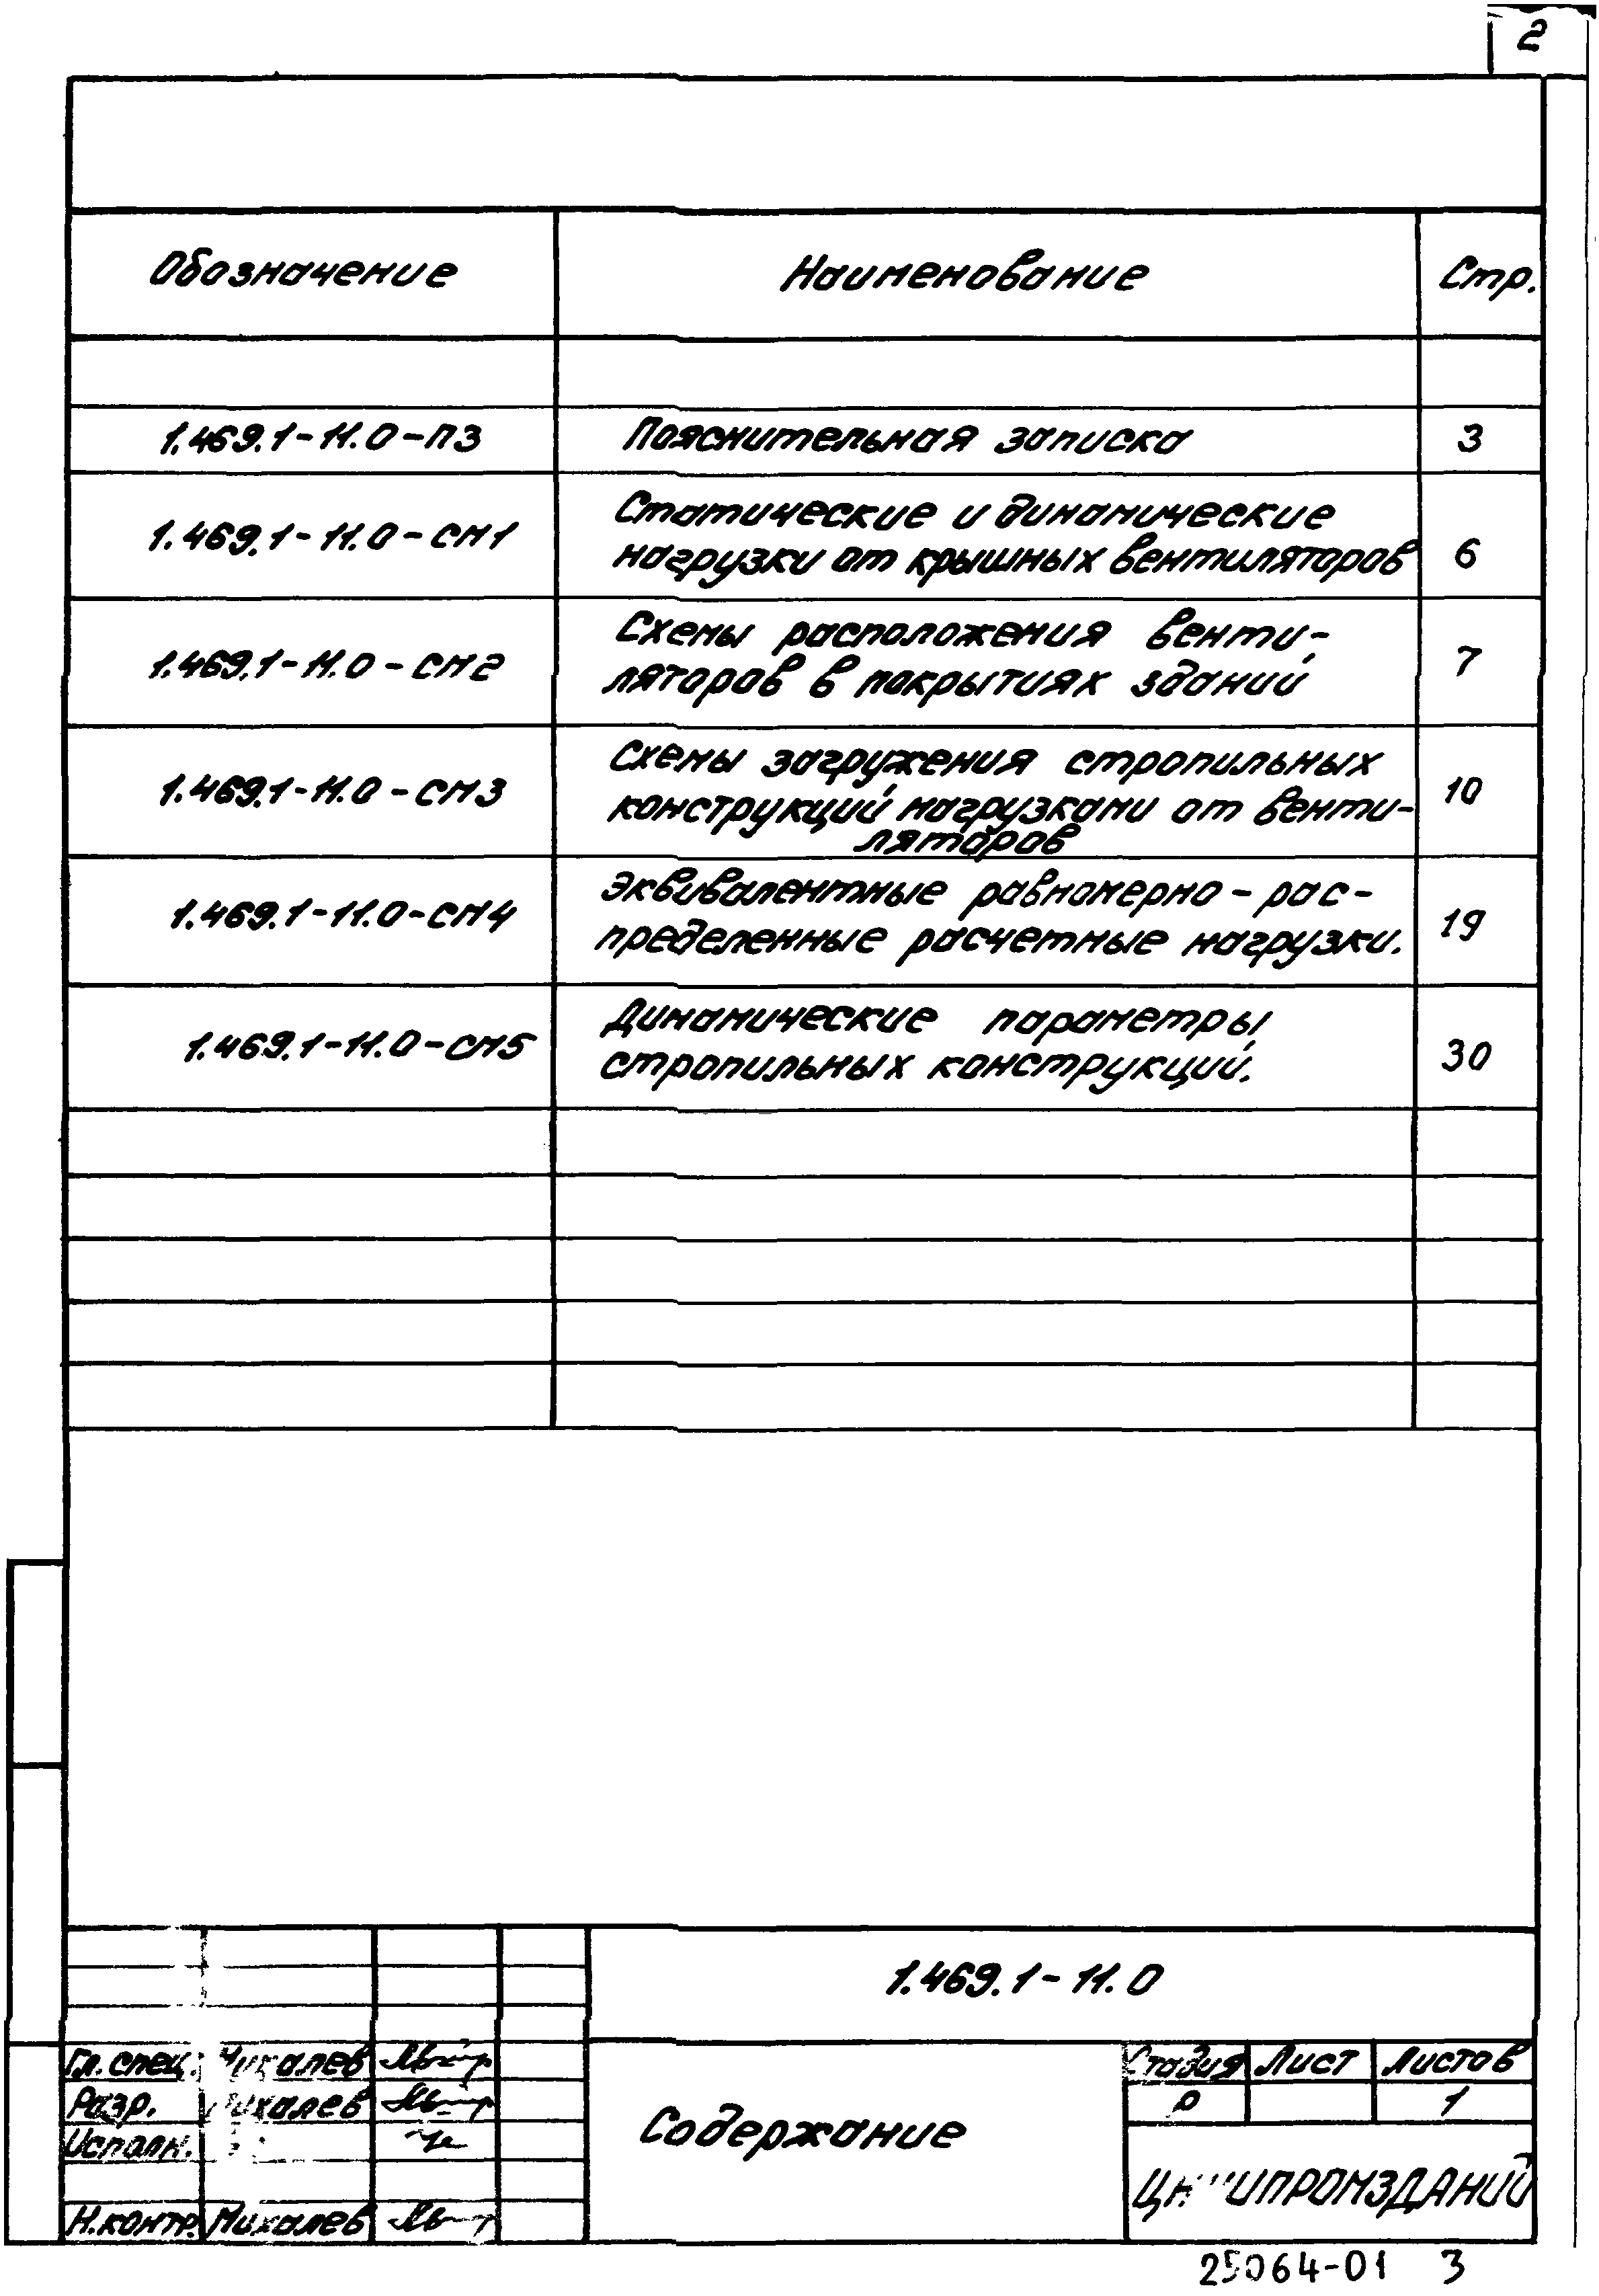 2
Обозначение Наименование Стр.
1.469.1-11.0-ПЗ Пояснительная записка 3
1.469.1-11.0-СМ1 Статические и динамические
нагрузки от крышных вентиляторов 6
1.469.1-11.0-СМ2 Схемы расположения венти-
ляторов в покрытиях зданий 7
1.469.1-11.0-СМ3 Схемы загружения стропильных
конструкций нагрузками от венти-
ляторов 10
1.469.1-11.0-СМ4 Эквивалентные равномерно-рас-
пределенные расчетные нагрузки. 19
1.469.1-11.0-СМ5 Динамические параметры
стропильных конструкций. 30
1.469.1-11.0
Гл. спец. Михалев
Разр. Михалев
Исполн.
Н.контр. Михалев
Содержание
Стадия Лист Листов
Р 1
ЦНИИПРОМЗДАНИЙ
25064-01 3